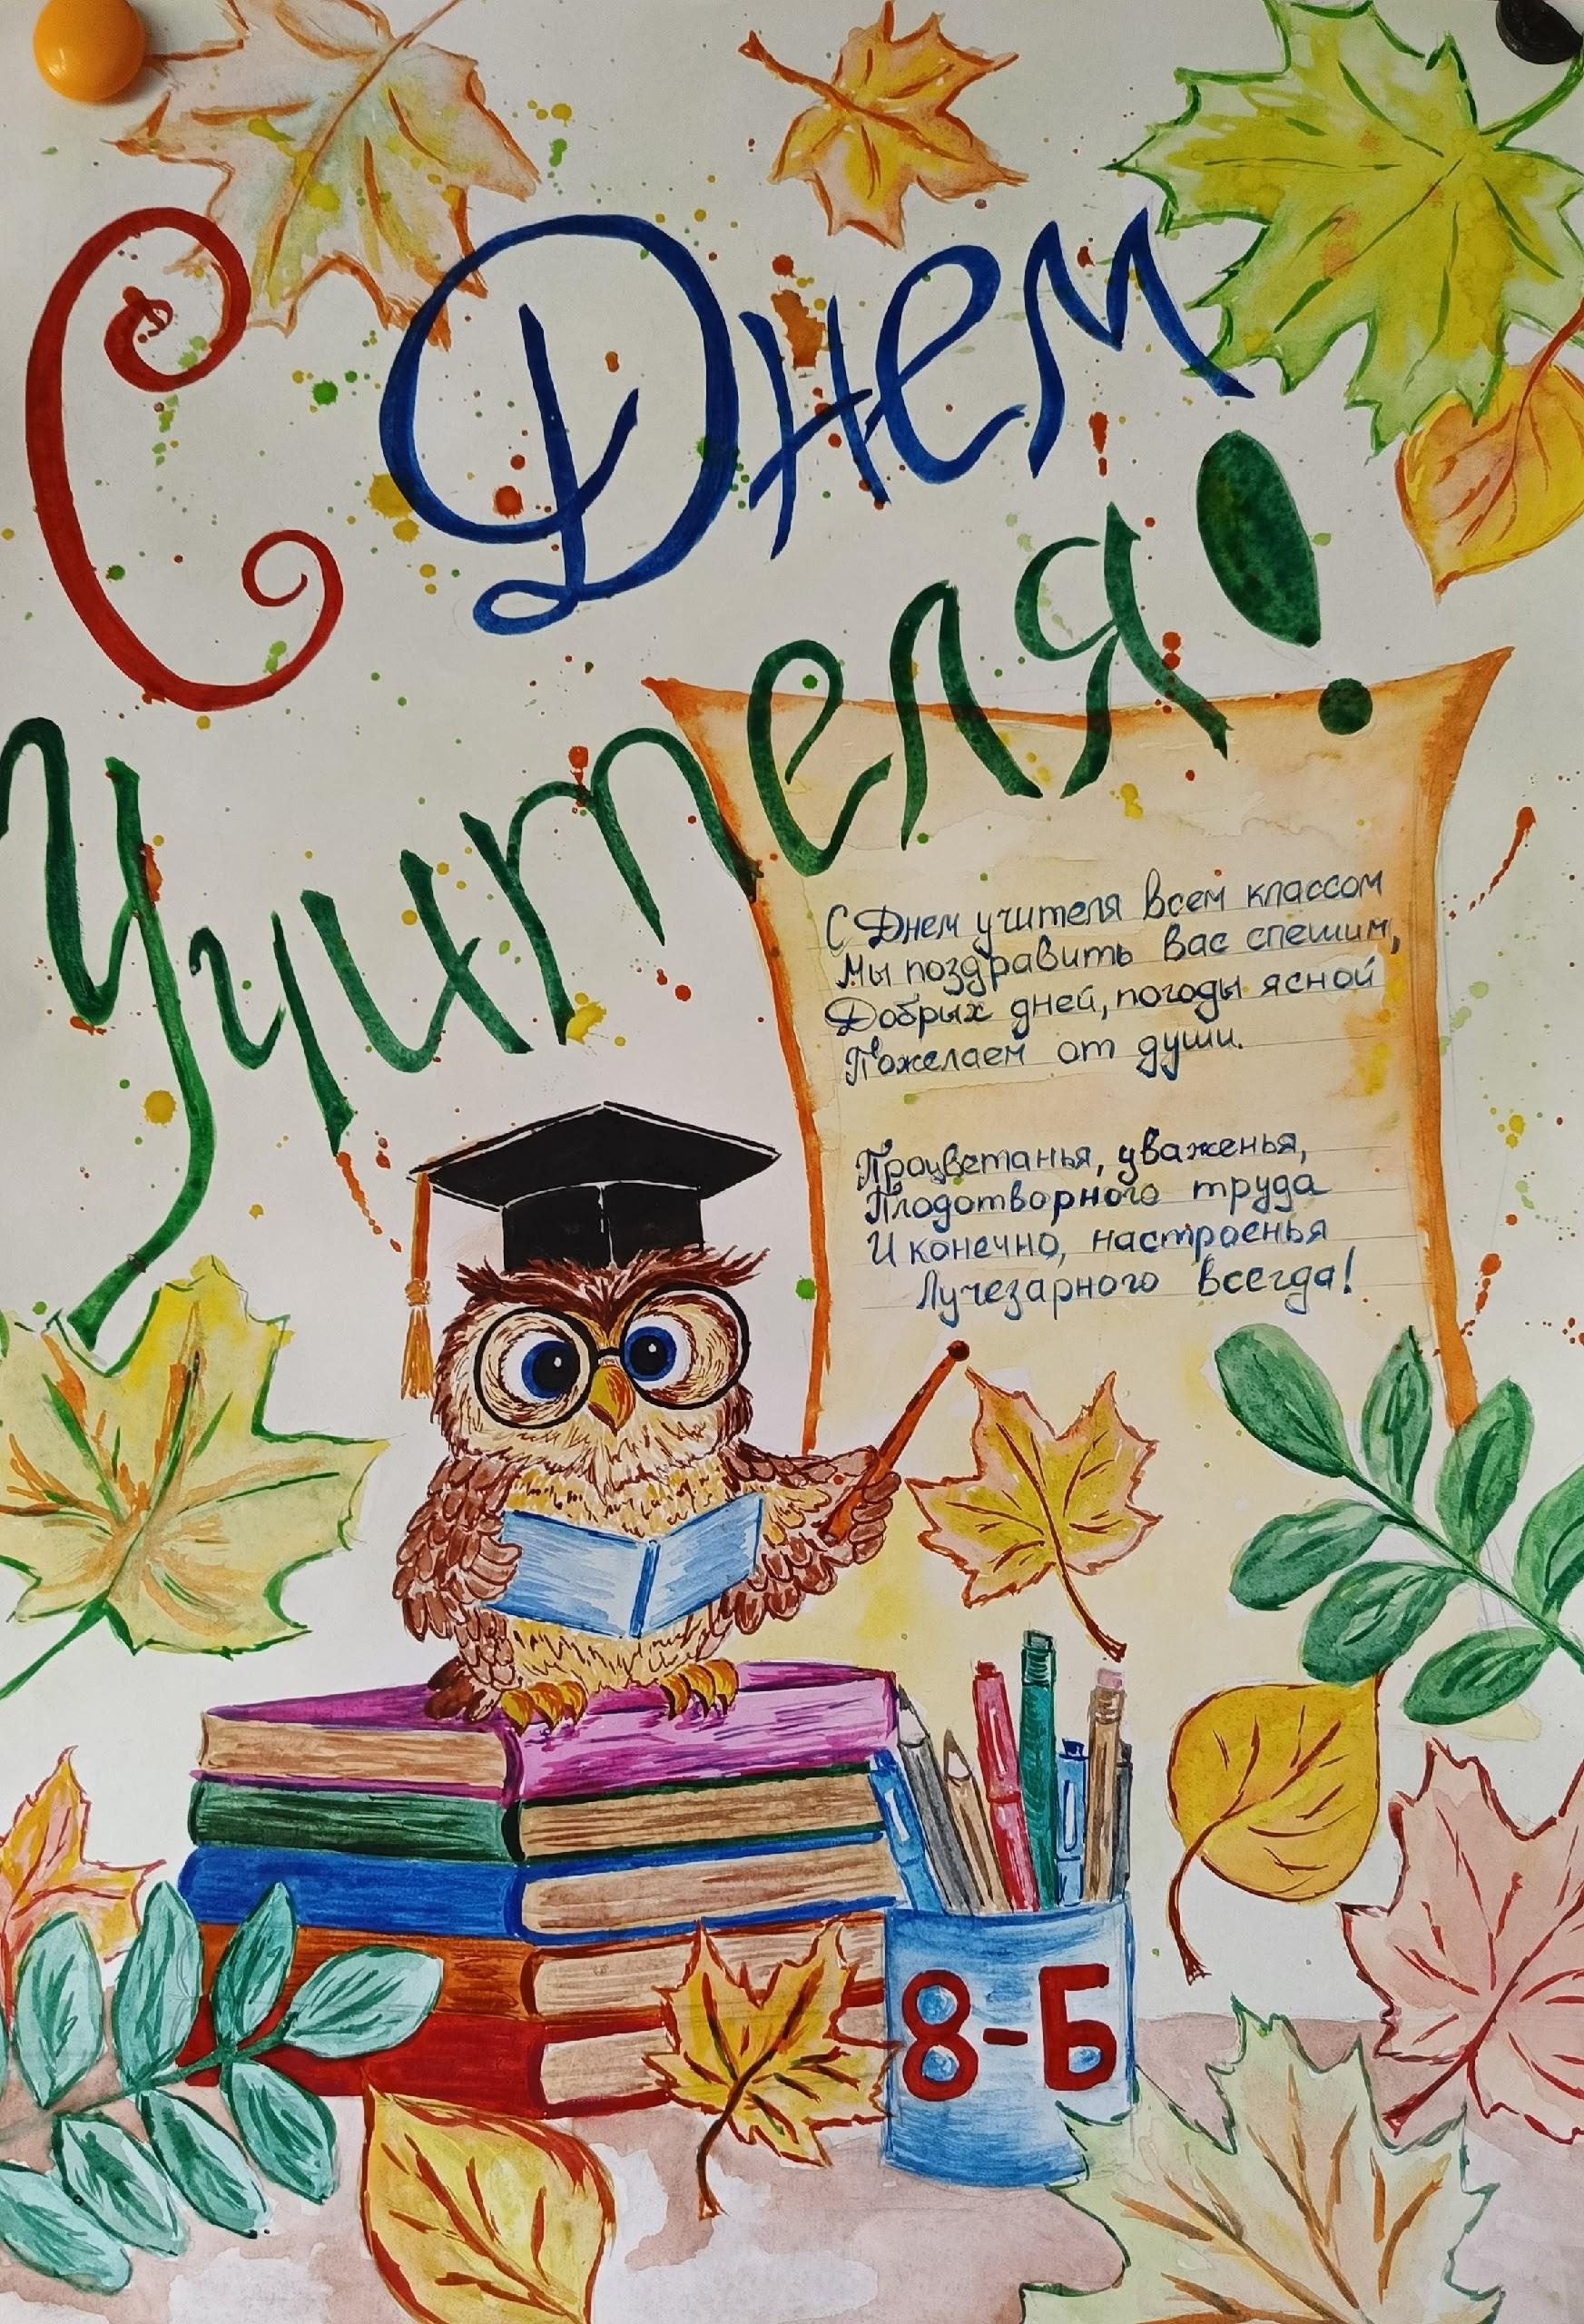 С Днем
Учителя!
С Днем учителя всем классом
Мы поздравить вас спешим,
Добрых дней, погоды ясной
Пожелаем от души.
Процветанья, уваженья,
Плодотворного труда
И конечно, настроенья
Лучезарного всегда!
8-Б